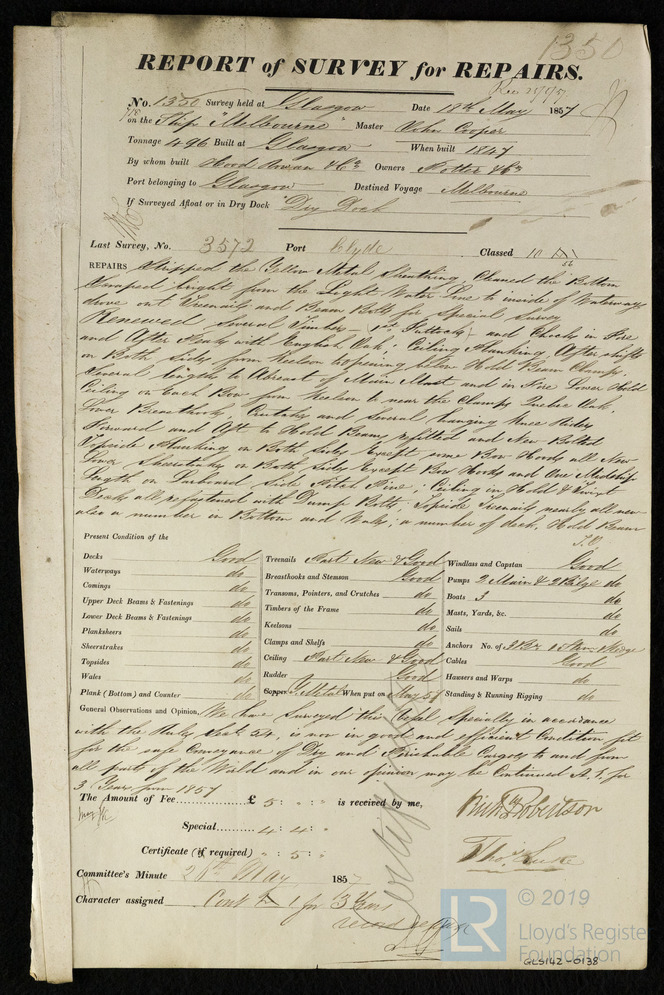 1350
REPORT of SURVEY for REPAIRS.
No. 1350 Survey held at Glasgow Date 18th May 1857
on the Ship "Melbourne" Master John Cooper
Tonnage 496 Built at Glasgow When built 1847
By whom built Hood & Co Owners Potter & Co
Port belonging to Glasgow Destined Voyage Melbourne
If Surveyed Afloat or in Dry Dock Dry Dock
Last Survey, No. 3572 Port Clyde Classed 10
REPAIRS Stripped the Yellow Metal Sheathing, Cleaned the Bottom
Scraped bright from the Light Water Line to inside of Waterways
drove out Treenails and Beam Bolts for Special Survey
Renewed Several Timbers 1st Futtocks and Chocks in Fore
and After Peaks with English Oak; Ceiling Planking After shifts
on Both Sides from Keelson to opening below Hold Beam Clamps.
Several lengths to Abreast of Main Mast and in Fore Lower Hold
Ceiling on Each Bow from Keelson to near the Clamps Quebec Oak,
Lower Breasthooks, Crutches and Several hanging Knee Riders
Forward and Aft to Hold Beams refitted and New Bolted
Topside Planking on Both Sides Except some Bow Hoods all New
Lower Sheerstrakes on Both Sides Except Bow Hoods and One Midship
Length on Larboard Side Pitch Pine; Ceiling in Hold & Twixt
Decks all refastened with Dump Bolts, Topside Treenails nearly all new
also a number in Bottom and Wales, a number of deck, Hold Beam
Present Condition of the
Decks Good
Waterways do
Comings do
Upper Deck Beams & Fastenings do
Lower Deck Beams & Fastenings do
Planksheers do
Sheerstrakes do
Topsides do
Wales do
Plank (Bottom) and Counter do
Treenails Part New & Good
Breasthooks and Stemson Good
Transoms, Pointers, and Crutches do
Timbers of the Frame do
Keelsons do
Clamps and Shelfs do
Ceiling Part New & Good
Rudder Good
Copper Y. Metal When put on May 57
Windlass and Capstan Good
Pumps 2 Main & 2 Bilge do
Boats 3 do
Masts, Yards, &c. do
Sails do
Anchors No. of 3 Br. 1 Stream
Cables Good
Hausers and Warps do
Standing & Running Rigging do
General Observations and Opinion, We have Surveyed this Vessel Specially in accordance
with the Rules Sect 54, is now in good and efficient Condition fit
for the safe Conveyance of Dry and Perishable Cargoes to and from
all parts of the World and in our opinion may be Continued A. 1. for
3 Years from 1857
The Amount of Fee £ 5 : " : " is received by me,
Special 4 : 4 : "
Certificate (if required) " : 5 : "
Robertson
Thos. Luke
Committee's Minute 26th May 1857
Character assigned Cont A 1 for 3 Years
© 2019
LR
Lloyd's Register
Foundation
GLS142-0138